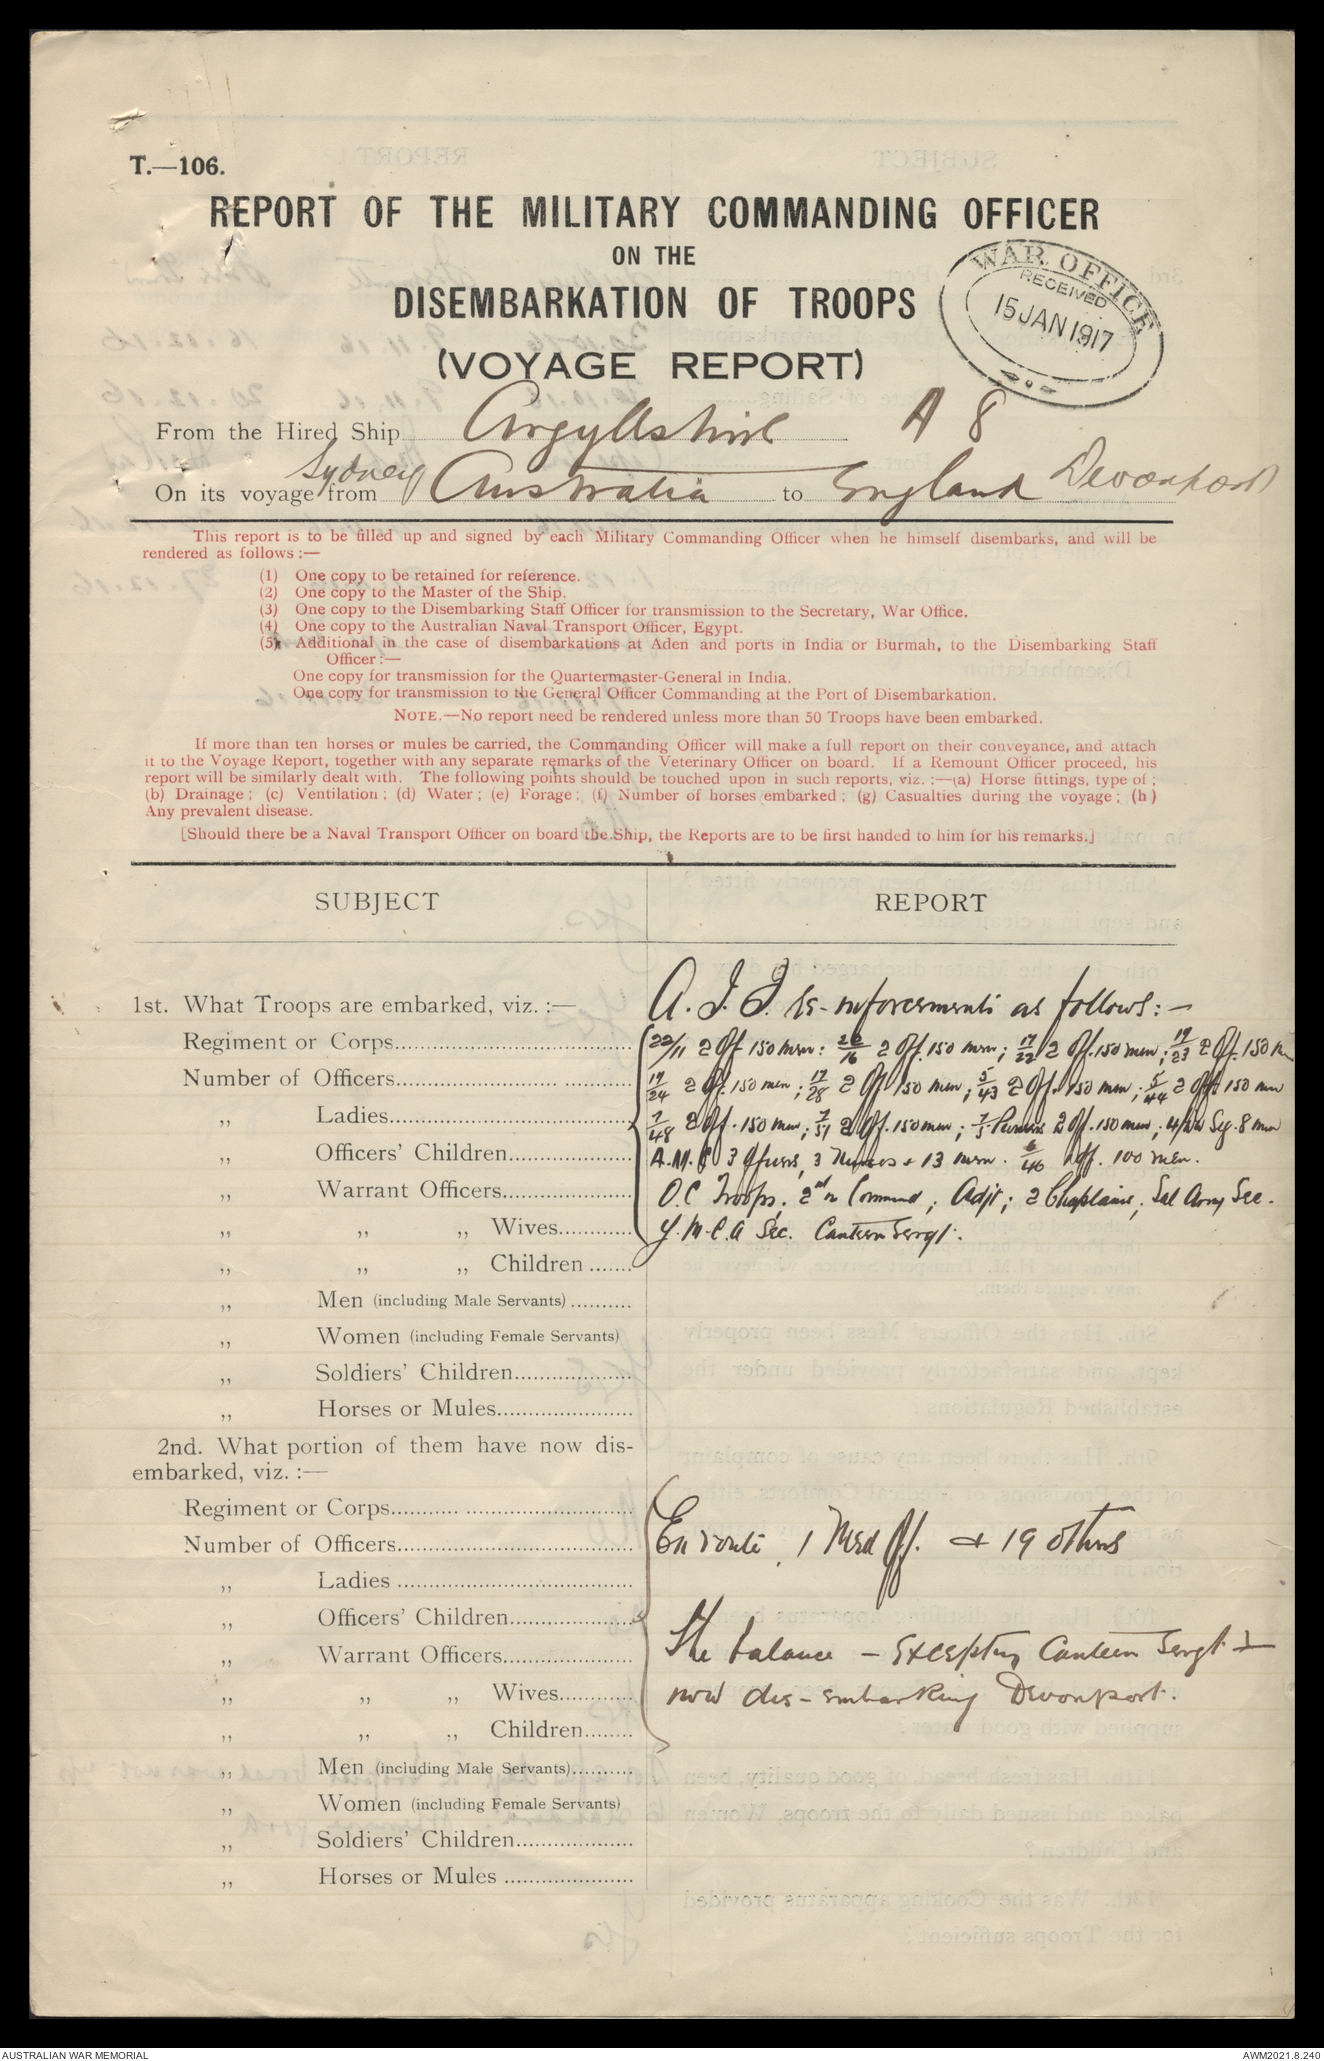 T.—106.
REPORT OF THE MILITARY COMMANDING OFFICER
ON THE
DISEMBARKATION OF TROOPS
(VOYAGE REPORT)
WAR OFFICE
RECEIVED
15 JAN 1917
From the Hired Ship Argyllshire A 8
Sydney
On its voyage from Australia to England Devonport
This report is to be filled up and signed by each Military Commanding Officer when he himself disembarks, and will be
rendered as follows :—
(1) One copy to be retained for reference.
(2) One copy to the Master of the Ship.
(3) One copy to the Disembarking Staff Officer for transmission to the Secretary, War Office.
(4) One copy to the Australian Naval Transport Officer, Egypt.
(5) Additional in the case of disembarkations at Aden and ports in India or Burmah, to the Disembarking Staff
Officer :—
One copy for transmission for the Quartermaster-General in India.
One copy for transmission to the General Officer Commanding at the Port of Disembarkation.
NOTE.—No report need be rendered unless more than 50 Troops have been embarked.
If more than ten horses or mules be carried, the Commanding Officer will make a full report on their conveyance, and attach
it to the Voyage Report, together with any separate remarks of the Veterinary Officer on board. If a Remount Officer proceed, his
report will be similarly dealt with. The following points should be touched upon in such reports, viz. :—(a) Horse fittings, type of ;
(b) Drainage ; (c) Ventilation ; (d) Water ; (e) Forage ; (f) Number of horses embarked ; (g) Casualties during the voyage ; (h)
Any prevalent disease.
[Should there be a Naval Transport Officer on board the Ship, the Reports are to be first handed to him for his remarks.]
SUBJECT REPORT
1st. What Troops are embarked, viz. :— A.I.F. Re-inforcements as follows:—
Regiment or Corps 22/11 2 Off 150 men: 20/16 2 Off. 150 men; 17/22 2 Off. 150 men; 17/23 2 Off. 150 m
Number of Officers 17/24 2 Off. 150 men; 17/28 2 Off 150 men; 5/43 2 Off. 150 men; 5/44 2 Off 150 men
,, Ladies 7/48 2 Off. 150 men; 7/51 2 Off. 150 men; 7/5 Pioneers 2 Off. 150 men; Sig. 8 men
,, Officers' Children A.M.C 3 Officers, 3 Nurses + 13 men. 6/46 1 Off. 100 men.
,, Warrant Officers O.C Troops; 2nd in Command; Adjt; 2 Chaplains; Sal Army Sec.
,, ,, ,, Wives Y.M.C.A Sec. Canteen Sergt.
,, ,, ,, Children
,, Men (including Male Servants)
,, Women (including Female Servants)
,, Soldiers' Children
,, Horses or Mules
2nd. What portion of them have now dis-
embarked, viz. :—
Regiment or Corps
Number of Officers En route, 1 Med Off. + 19 others
,, Ladies
,, Officers' Children
,, Warrant Officers The balance – excepting Canteen Sergt –
,, ,, ,, Wives now dis-embarking Devonport.
,, ,, ,, Children
,, Men (including Male Servants)
,, Women (including Female Servants)
,, Soldiers' Children
,, Horses or Mules
AUSTRALIAN WAR MEMORIAL AWM2021.8.240